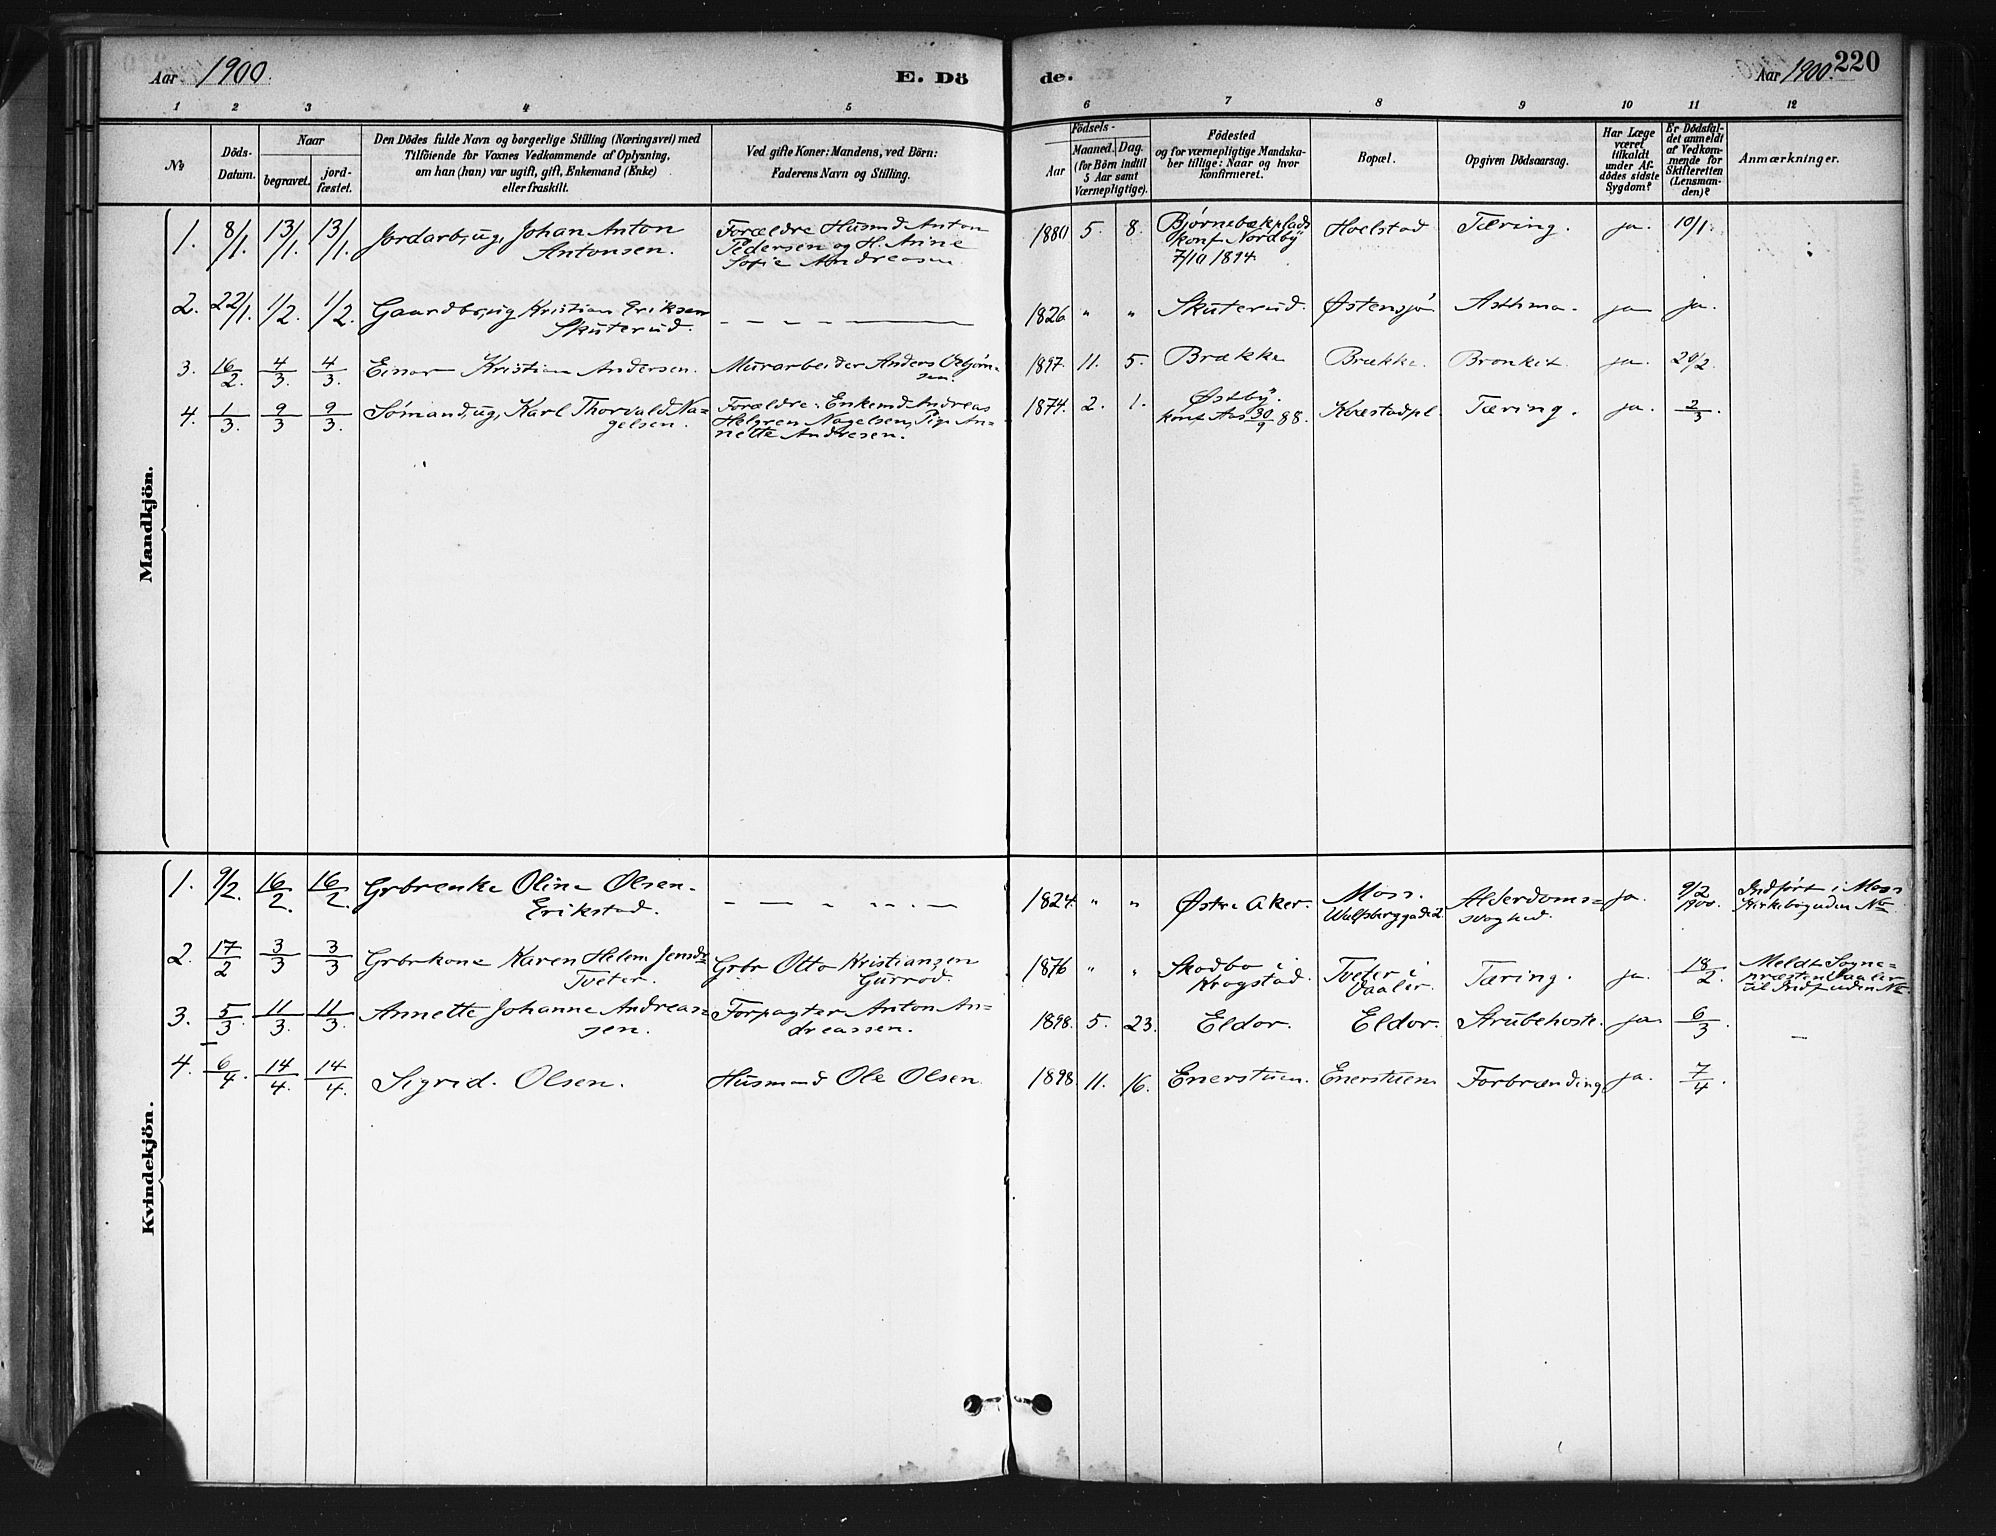 Aar 1900.
E. Dö
de.
Aar 1900.
220
1 2 3 4 5 6 7 8 9 10 11 12
No
Döds-
Datum.
Naar
begravet.
jord-
fæstet.
Den Dödes fulde Navn og borgerlige Stilling (Næringsvei) med
Tilföiende for Voxnes Vedkommende af Oplysning,
om han (hun) var ugift, gift, Enkemand (Enke)
eller fraskilt.
Ved gifte Koner: Mandens, ved Börn:
Faderens Navn og Stilling.
Födsels-
Aar
Maaned. Dag.
(for Börn indtil
5 Aar samt
Værnepligtige).
Födested
og for værnepligtige Mandska-
ber tillige: Naar og hvor
konfirmeret.
Bopæl.
Opgiven Dödsaarsag.
Har Læge
været
tilkaldt
under Af-
dödes sidste
Sygdom?
Er Dödsfal-
det anmeldt
af Vedkom-
mende for
Skifteretten
(Lensman-
den)?
Anmærkninger.
Mandkjön.
1. 8/1. 13/1. 13/1. Jordarb, ug, Johan Anton
Antonsen.
Forældre Husmd Anton
Pedersen og H. Anine
Sofie Andreasen
1880 5. 8. Bjørnebækplads
konf Nordby
7/10 1894.
Holstad Tæring. ja. 10/1.
2. 22/1. 1/2. 1/2. Gaardbr, ug Kristian Eriksen
Skuterud.
1826 " " Skuterud. Østensjø Asthma. ja ja.
3. 16/2. 4/3. 4/3. Einar Kristian Andersen. Murarbeider Anders
1897. 11. 5. Brække Brække. Bronkit. ja. 20/2.
4. 1/3. 9/3 9/3 Sømand, ug, Karl Thorvald Na-
gelsen.
Forældre: Enkemd Andreas
Helgren Nagelsen, Pige An-
nette Andresen.
1874. 2. 1. Østby.
konf Aas 30/9 88.
Kvestadpl Tæring. ja. 2/3.
Kvindekjön.
1. 9/2. 16/2. 16/2. Grbrenke Oline Olsen.
Erikstad.
1824. " " Østre Aker. Moss.
Wulfsberggade 2.
Alderdoms-
svaghed.
ja. 9/2
1900.
Indført i Moss
Kirkebog uden No
2. 17/2 3/3 3/3 Grbrkone Karen Helene Jensdr
Tveter.
Grbr Otto Kristiansen
Gurrod.
1876 " " Skodbo i
Krogstad.
Tveter i
Vaaler.
Tæring. ja. 18/2.
Meldt Sogne-
præsten i Vaaler
til Indf uden No.
3. 5/3. 11/3. 11/3. Annette Johanne Andreas-
sen.
Forpagter Anton An-
dreassen.
1898. 5. 23. Eldor. Eldor. Strubehoste. ja. 6/3
4. 6/4. 14/4. 14/4. Sigrid. Olsen. Husmand Ole Olsen.
1898 11. 16. Enerstuen. Enerstuen Forbrænding ja. 7/4.